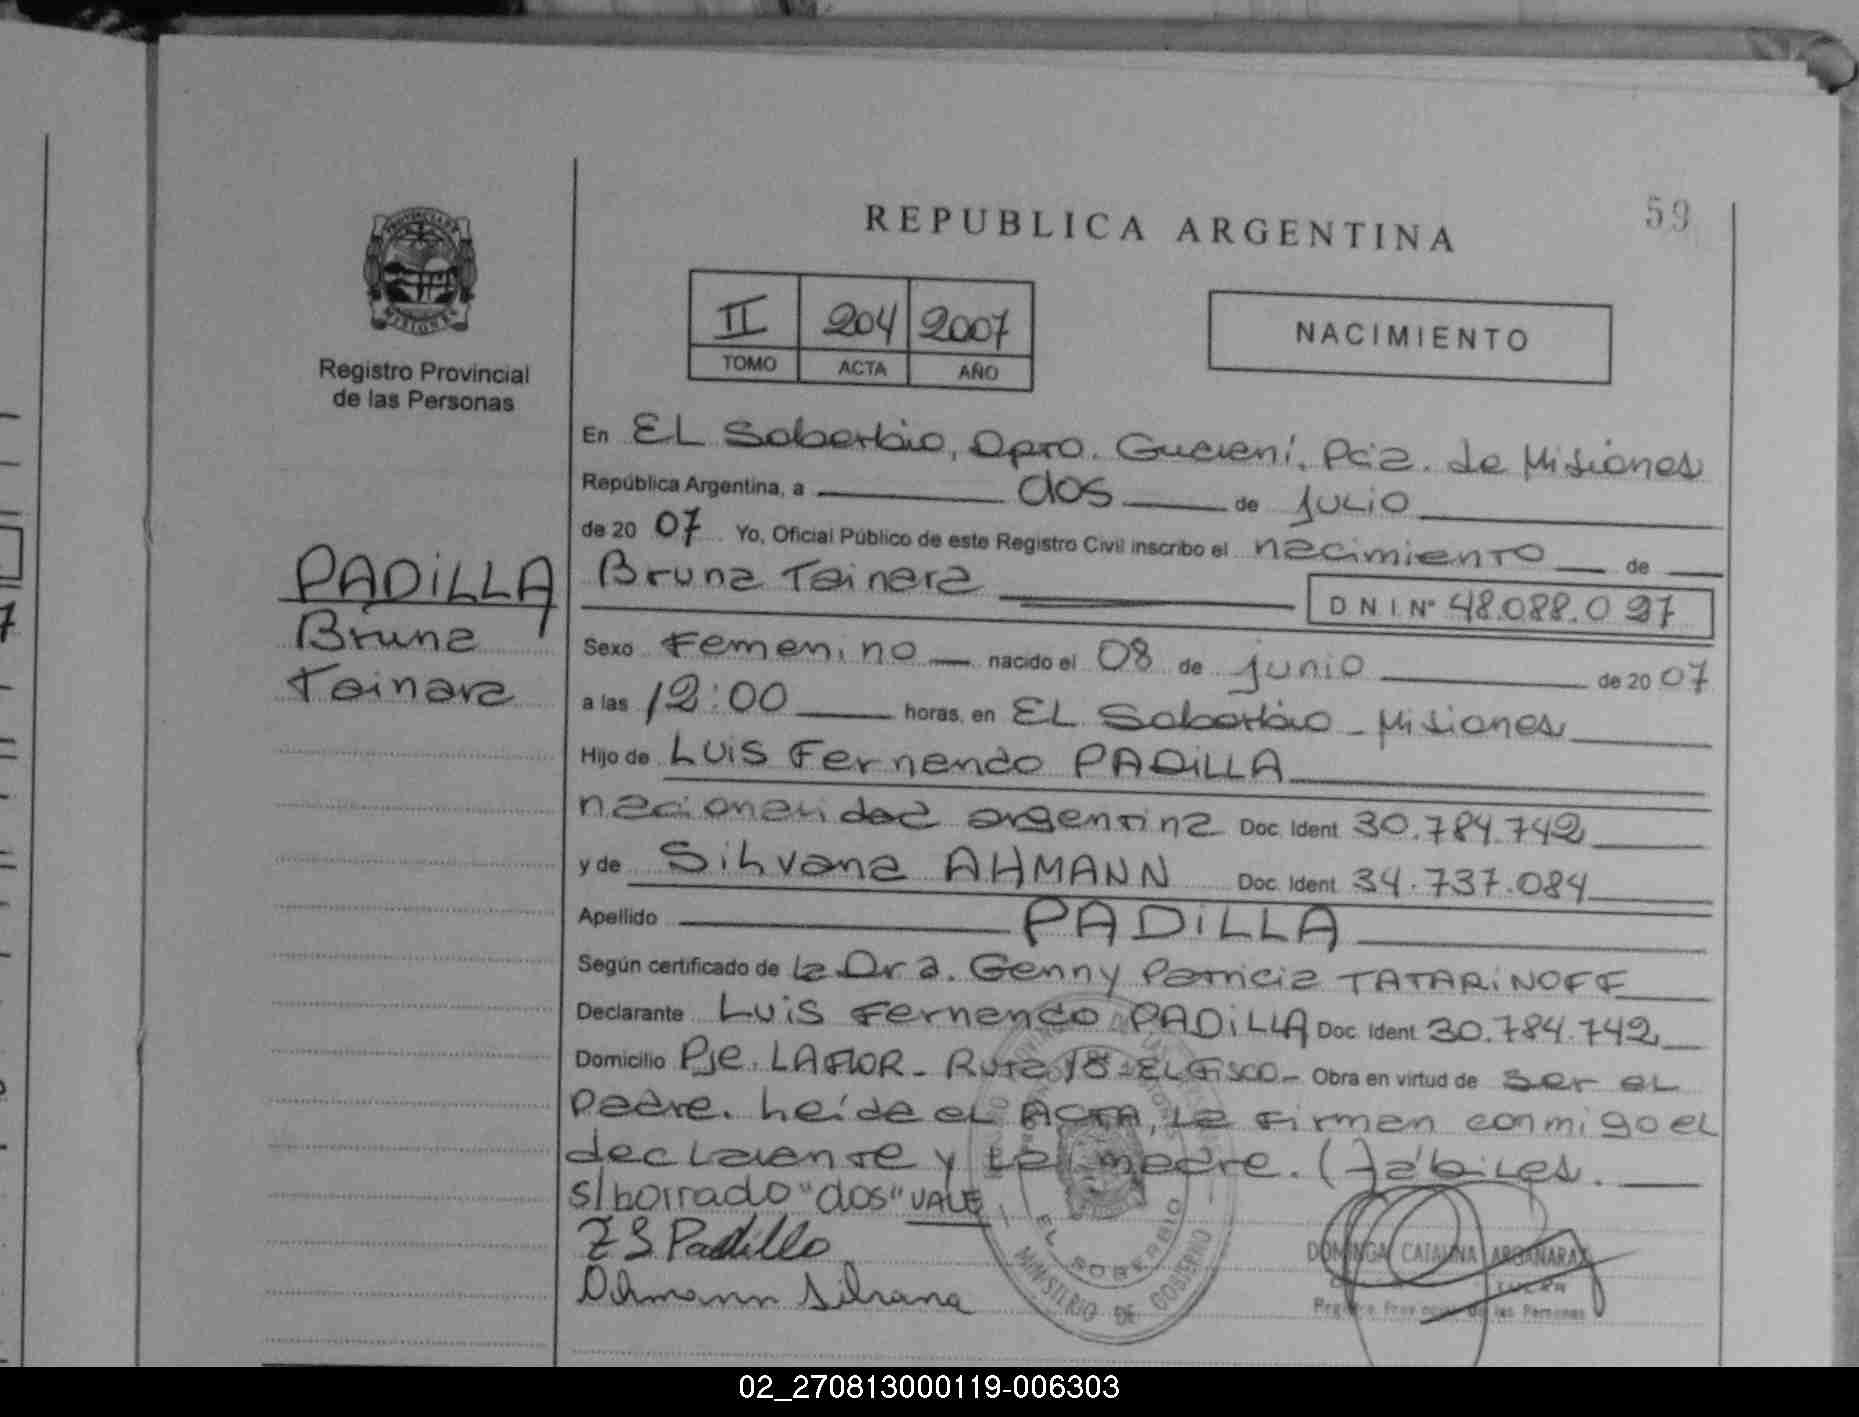 REPUBLICA ARGENTINA
59
PROVINCIA DE
MISIONES
Registro Provincial
de las Personas
II 204 2007
TOMO ACTA AÑO
NACIMIENTO
En EL Soberbio, Dpto. Guaraní, Pcia. de Misiones
República Argentina, a dos de julio
de 2007 Yo, Oficial Público de este Registro Civil inscribo el nacimiento de
Bruna Tainara
D N I Nº 48.088.097
PADiLLA
Bruna
Tainara
Sexo Femenino nacido el 08 de junio de 2007
a las 12:00 horas, en EL Soberbio - Misiones
Hijo de LUiS Fernando PADiLLA
nacionalidad argentina Doc. Ident 30.784.742
y de Silvana AHMANN Doc. Ident 34.737.084
Apellido PADiLLA
Según certificado de la Dra. Genny Patricia TATARiNOFF
Declarante LUiS Fernando PADiLLA Doc. Ident 30.784.742
Domicilio Pje. LA FLOR - Ruta 13 - EL Fisco - Obra en virtud de ser el
Padre. Leída el ACTA, la firman conmigo el
declarante y la madre. ( ) ábiles.
s/borrado "dos" VALE
Padilla
Ahmann Silvana
EL SOBERBIO
MINISTERIO DE GOBIERNO
DOMINGA CATALINA ARGAÑARAZ
Registro Provincial de las Personas
02_270813000119-006303